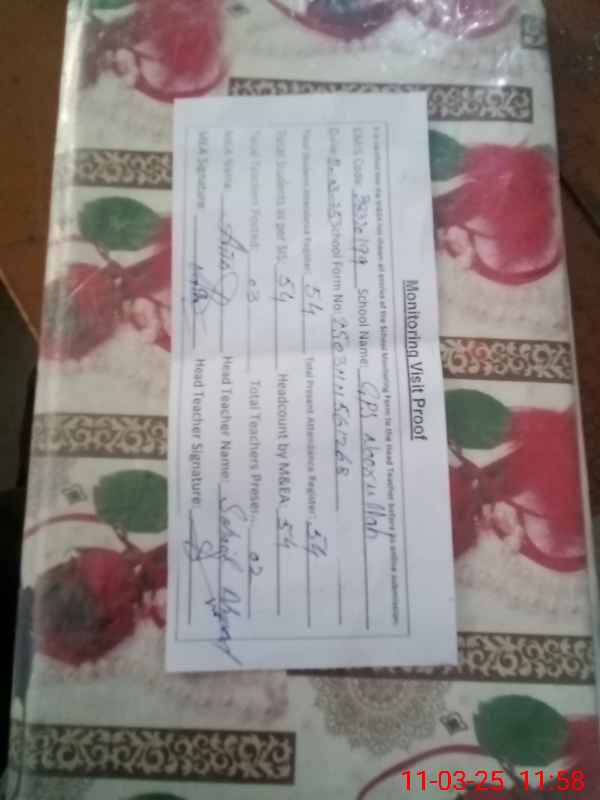 Monitoring Visit Proof
It is certified that the M&EA has shown all entries of the School Monitoring Form to the Head Teacher before its online submission.
EMIS Code: School Name: GPS Noor ullah
Date: 11-03-25 School Form No: 250311115617268
Total Student Attendance Register: 54 Total Present Attendance Register: 54
Total Students as per SIS: 54 Headcount by M&EA: 54
Total Teachers Posted: 03 Total Teachers Presen: 02
MEA Name: Head Teacher Name: Sahid
MEA Signature: Head Teacher Signature:
11-03-25 11:58